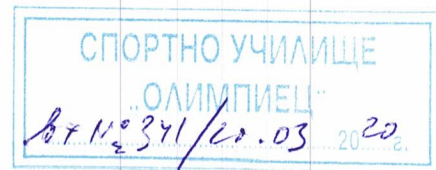 СПОРТНО УЧИЛИЩЕ
„ОЛИМПИЕЦ"
Вх № 341/20.03 2020 г.